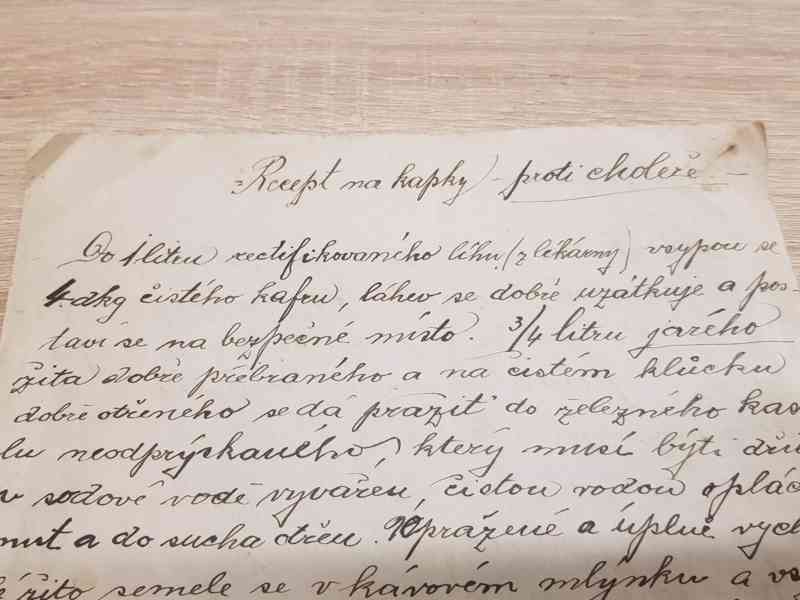 Recept na kapky - proti choleře -
Do 1 litru rectifikovaného líhu (z lékárny) vsypou se
4 dkg čistého kafru, láhev se dobře uzátkuje a pos-
taví se na bezpečné místo. 3/4 litru jarého
žita dobře přebraného a na čistém klůcku
dobře otřeného se dá pražit do železného kas
lu neodprýskaného, který musí býti dří
v sodové vodě vyvářen, čistou vodou oplác
nut a do sucha dřen. Opražené a úplně vych
é žito semele se v kávovém mlýnku a vs